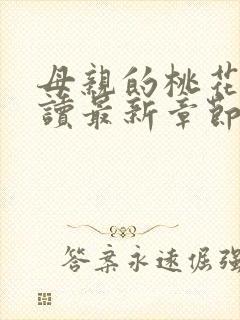 母親的桃花
讀最新章節
答案永遠倔強